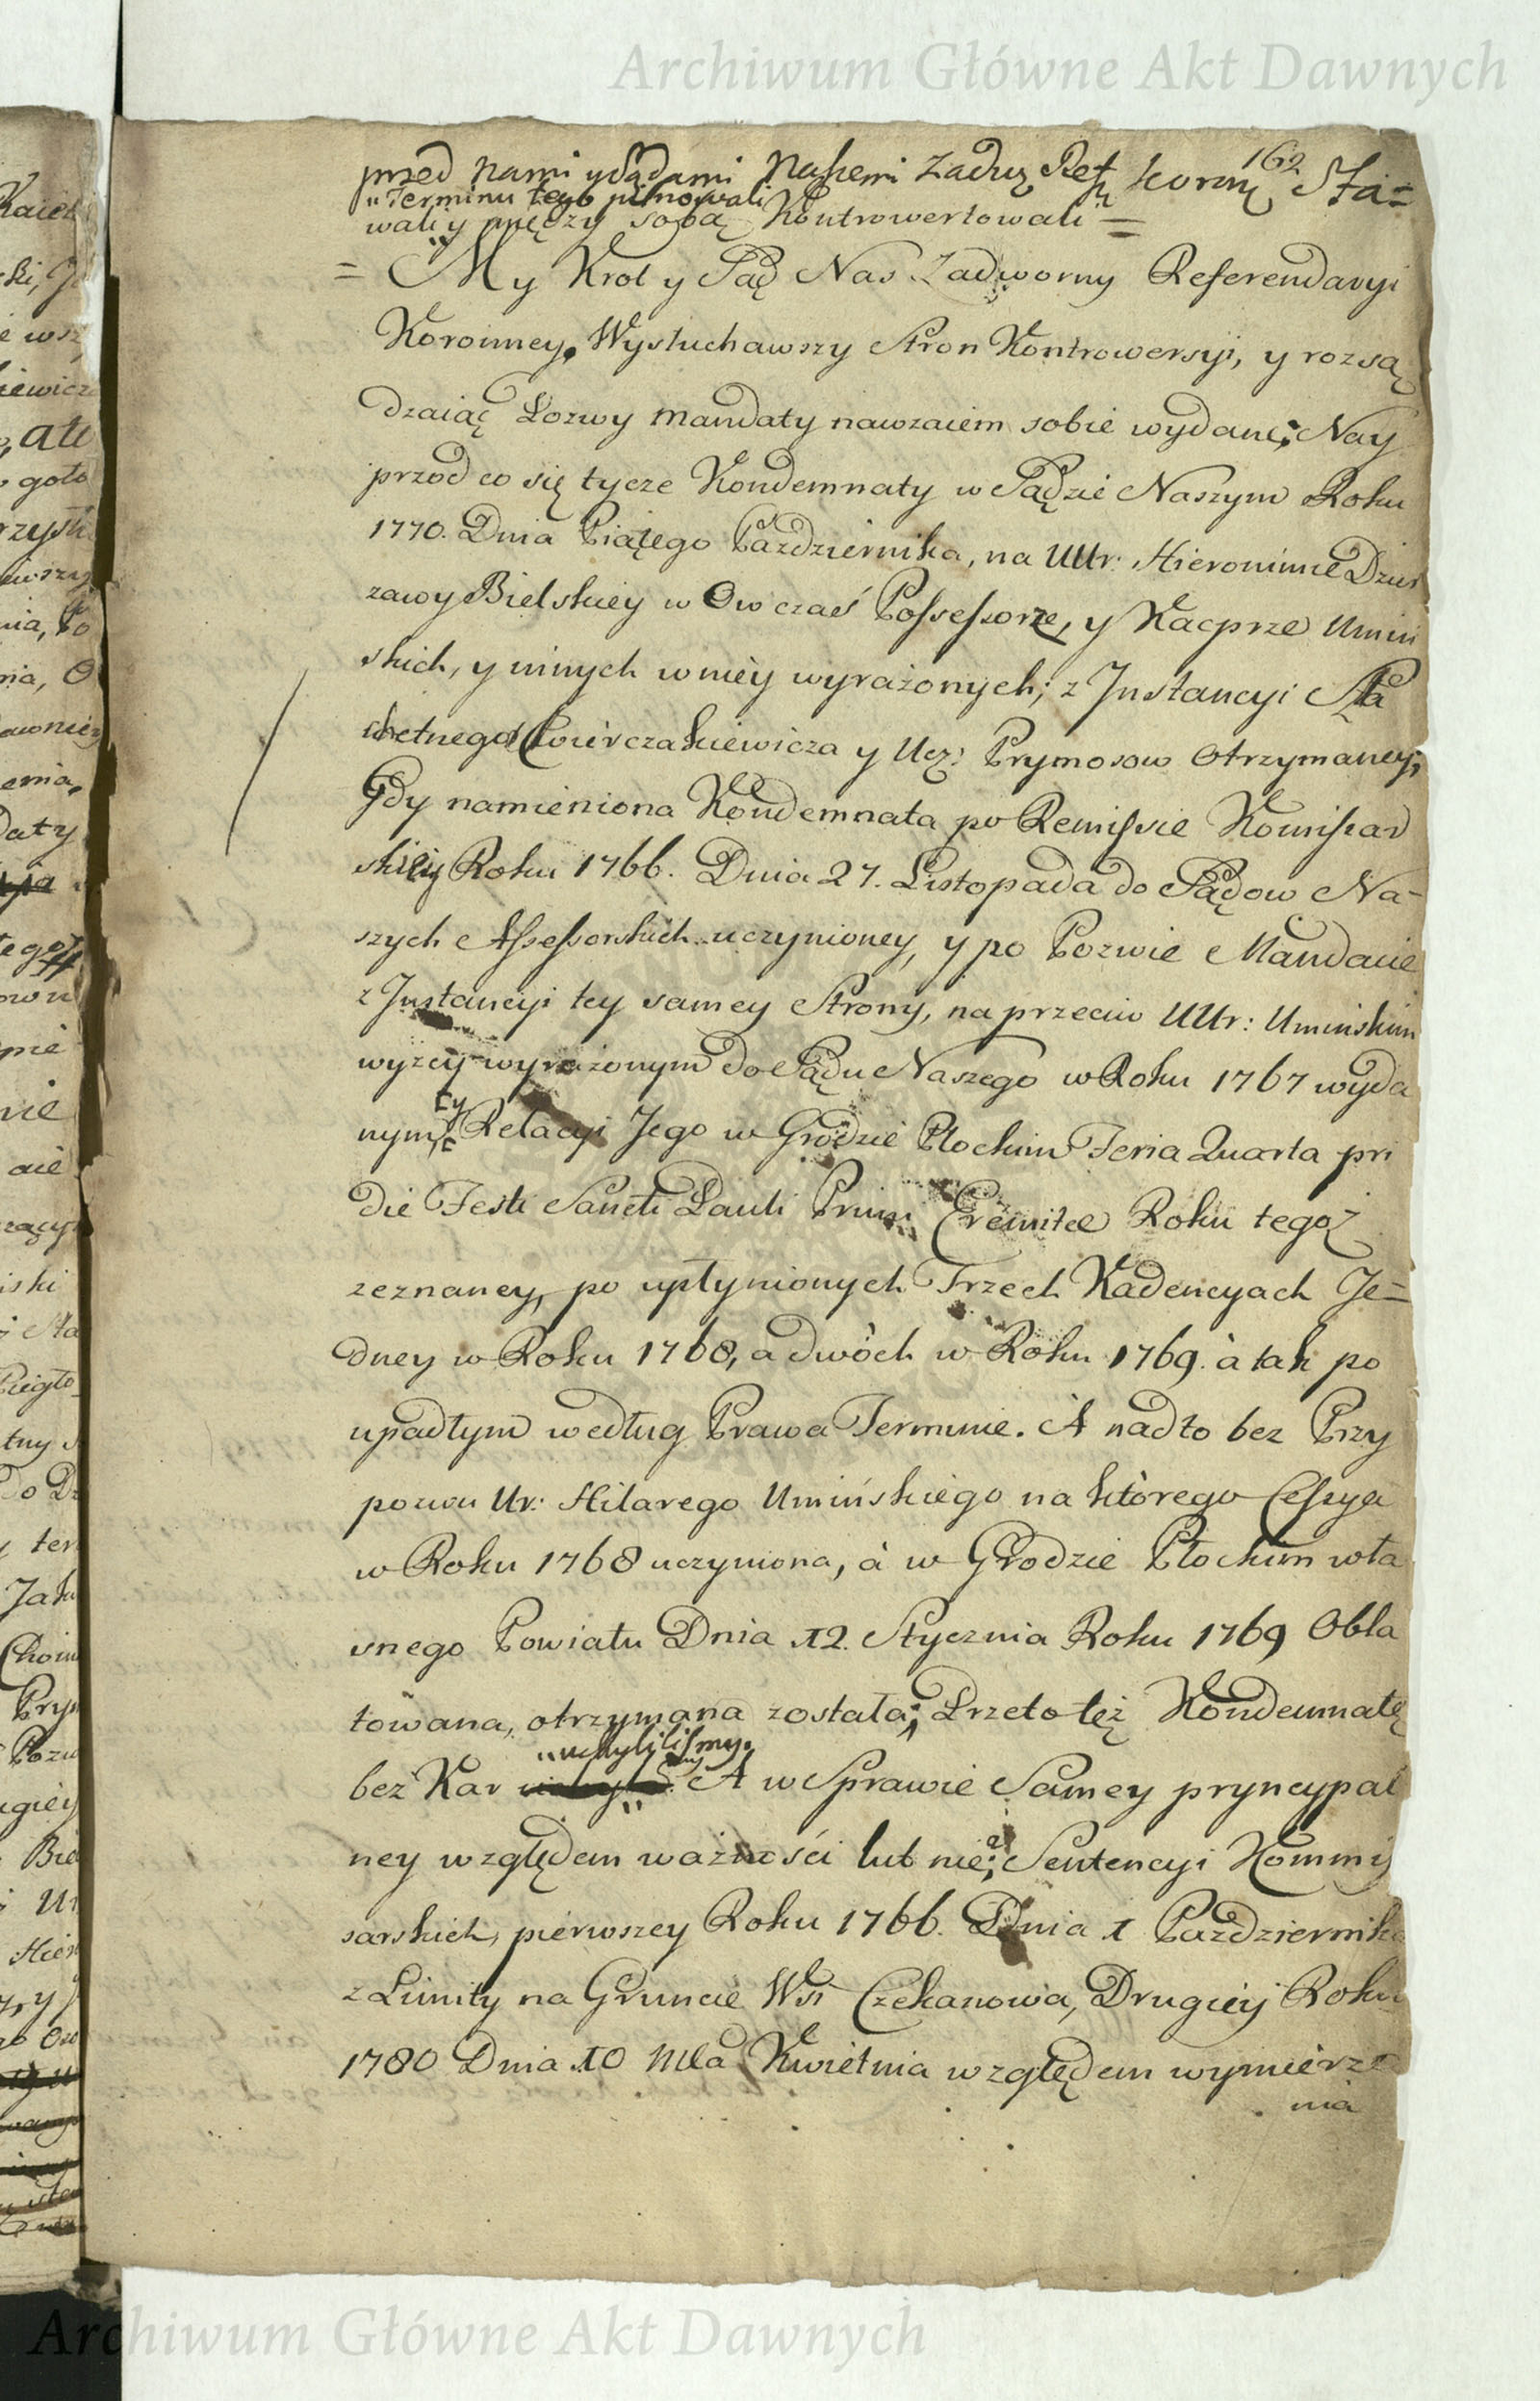 Archiwum Główne Akt Dawnych
162
przed nami y Sądami Naszemi Zadw. Ref. koronn Sta=
"Terminu tego pilnowali
wali y między sobą Kontrowertowali =
= My Krol y Sąd Nas Zadworny Referendaryi
Koronney, Wysłuchawszy Stron Kontrowersyi, y rozsą
dzaiąc Pozwy mandaty nawzaiem sobie wydane; Nay
przod co się tycze Kondemnaty w Sądzie Naszym Roku
1770. Dnia Piątego Pazdziernika, na UUr: Hieronimie Dzier
zawy Bielskiey w Ow czas Possessorze, y Kacprze Umin
skich, y innych w niey wyrażonych; z Instancyi Szla
chetnego Cwierczakiewicza y Ucz: Prymosow Otrzymaney;
Gdy namieniona Kondemnata po Remissie Komissar
skiey Roku 1766. Dnia 27. Listopada do Sądow Na-
szych Assessorskich uczynioney, y po Pozwie Mandacie
z Instancyi tey samey Strony, na przeciw UUr: Uminskim
wyzey wyrażonym do Sądu Naszego w Roku 1767 wyda
nym, ty Relacyi Jego w Grodzie Płockim Feria Quarta pri
die Festi Sancti Pauli Primi Eremitæ Roku tegoż
zeznaney, po upłynionych Trzech Kadencyach Je=
dney w Roku 1768, a dwóch w Roku 1769. à tak po
upadłym według Prawa Terminie. A nadto bez Przy
pozwu Ur: Hilarego Umińskiego na którego Cessya
w Roku 1768 uczyniona, à w Grodzie Płockim wła
snego Powiatu Dnia 12. Stycznia Roku 1769 Obla
towana, otrzymana została; Przeto tęż Kondemnatę
"uchyliliśmy.
bez Kar A w Sprawie Samey pryncypal
ney względem ważności lub nie; Sentencyi Kommis
sarskich, pierwszey Roku 1766. Dnia 1 Pazdziernika
z Limity na Gruncie Wsi Czekanowa, Drugiey Roku
1780 Dnia 10 Mca Kwietnia względem wymierze
nia
Archiwum Główne Akt Dawnych